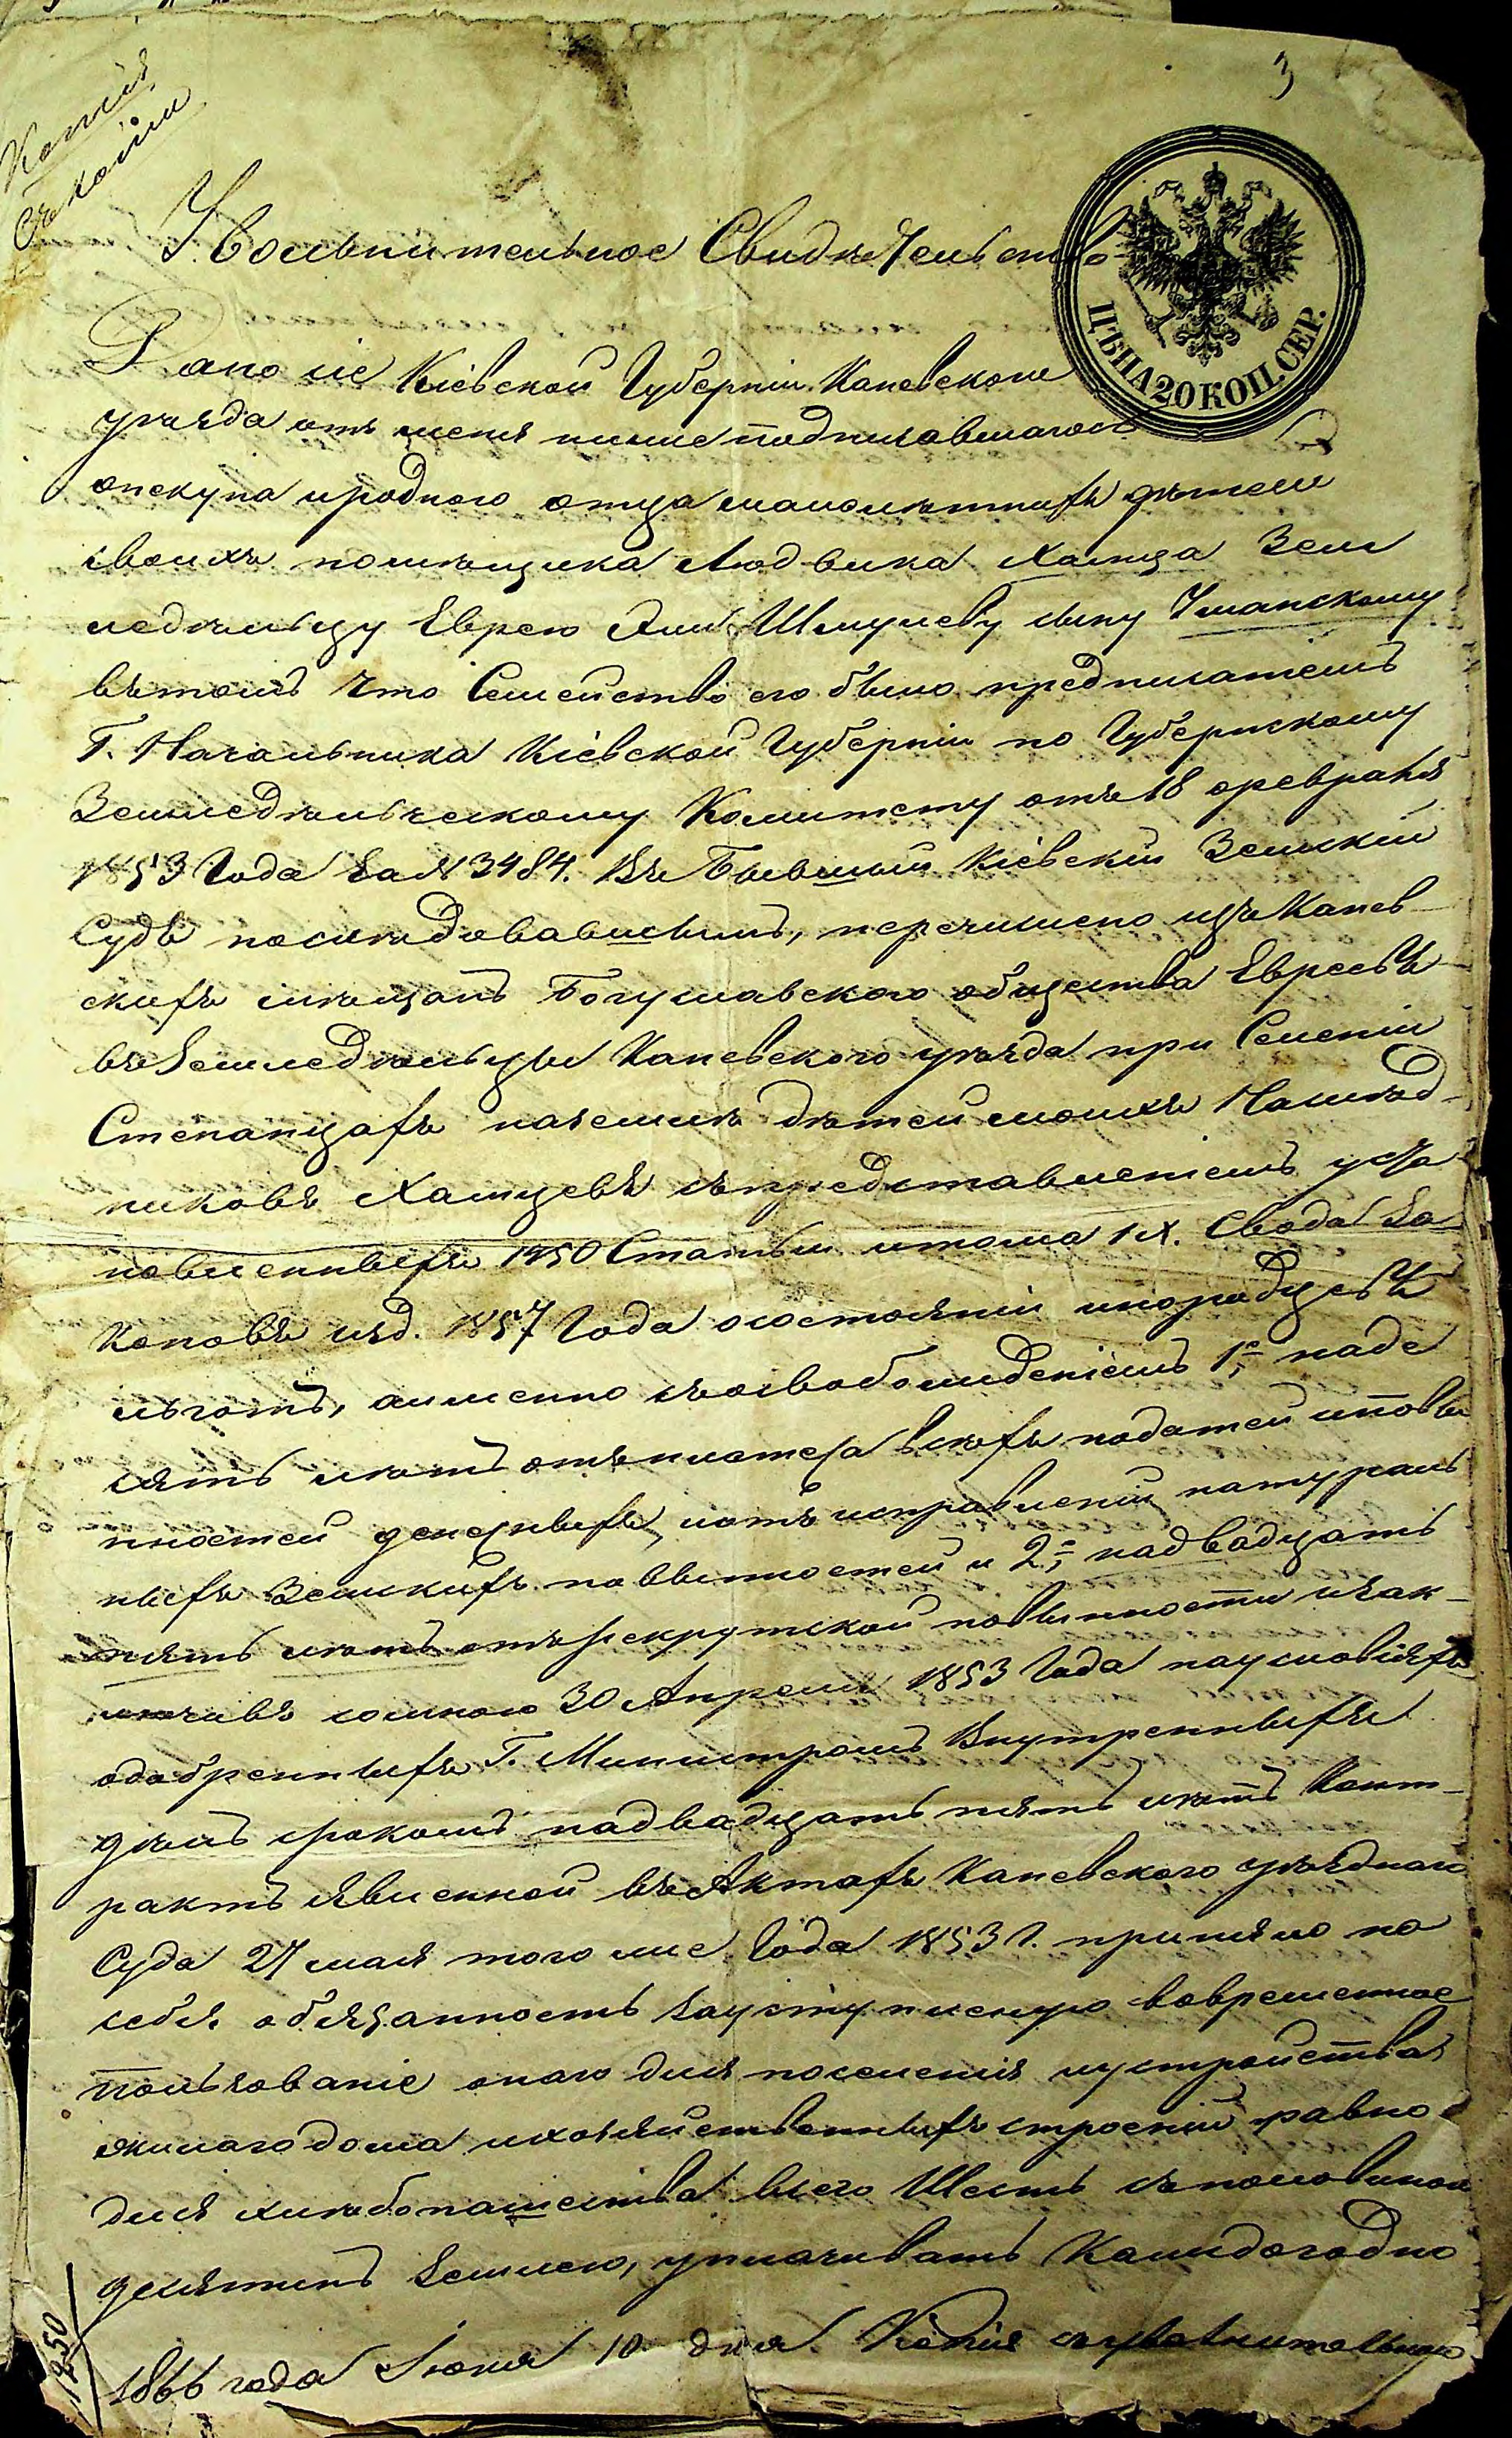 3
Копія
Съ копіи
Увольнительное Свидѣтельство
ЦѢНА 20 КОП. СЕР.
Дано сіе Кіевской Губерніи Каневскаго
уѣзда отъ меня ниже подписавшагося
опекуна и роднаго отца малолѣтныхъ дѣтей
своихъ помѣщика Людвика Халица Зем
ледѣльцу Еврею Эли Шмулеву сыну Уманскому
въ томъ что Семейство его было предписаніемъ
Г. Начальника Кіевской Губерніи по Губернскому
Земледѣльческому Комитету отъ 18 февраля
1853 Года за № 3484. Въ Бывшый Кіевскій Земскій
Судъ послѣдовавшымъ, перечислено изъ Канев-
скихъ мѣщанъ Богуславского общества Евреевъ
въ Земледѣльцы Каневского уѣзда при Селеніи
Степанцахъ на землѣ дѣтей моихъ Наслѣд-
никовъ Халицевъ съ представленіемъ уста
новленныхъ 1450 Статьи и тома IX. Свода За
коновъ изд. 1857 Года о состояніи инородцевъ
льготъ, а именно съ освобожденіемъ 1е, на де
сять лѣтъ отъ платежа всѣхъ податей и повы
нностей денежныхъ, и отъ исправленій натураль
ныхъ Земскихъ повынностей и 2е, на двадцать
пять лѣтъ отъ рекрутской повынности и зак-
лючивъ со мною 30 Апреля 1853 Года на условіяхъ
одобренныхъ Г. Министромъ Внутренныхъ
дѣлъ срокомъ на двадцать пять лѣтъ Конт-
рактъ явленной въ Актахъ Каневского уѣзднаго
Суда 27 мая того же Года 1853 г. приняло на
себя обязанность за уступленую во временное
пользованіе онаго для поселенія и устройства
жилаго дома и хозяйственныхъ строеній равно
для хлѣбопашества всего Шесть съ половиной
десятинъ землею, уплачивать Каждогодно
1866 года Іюня 10 дня. Копія съ увольнительнаго